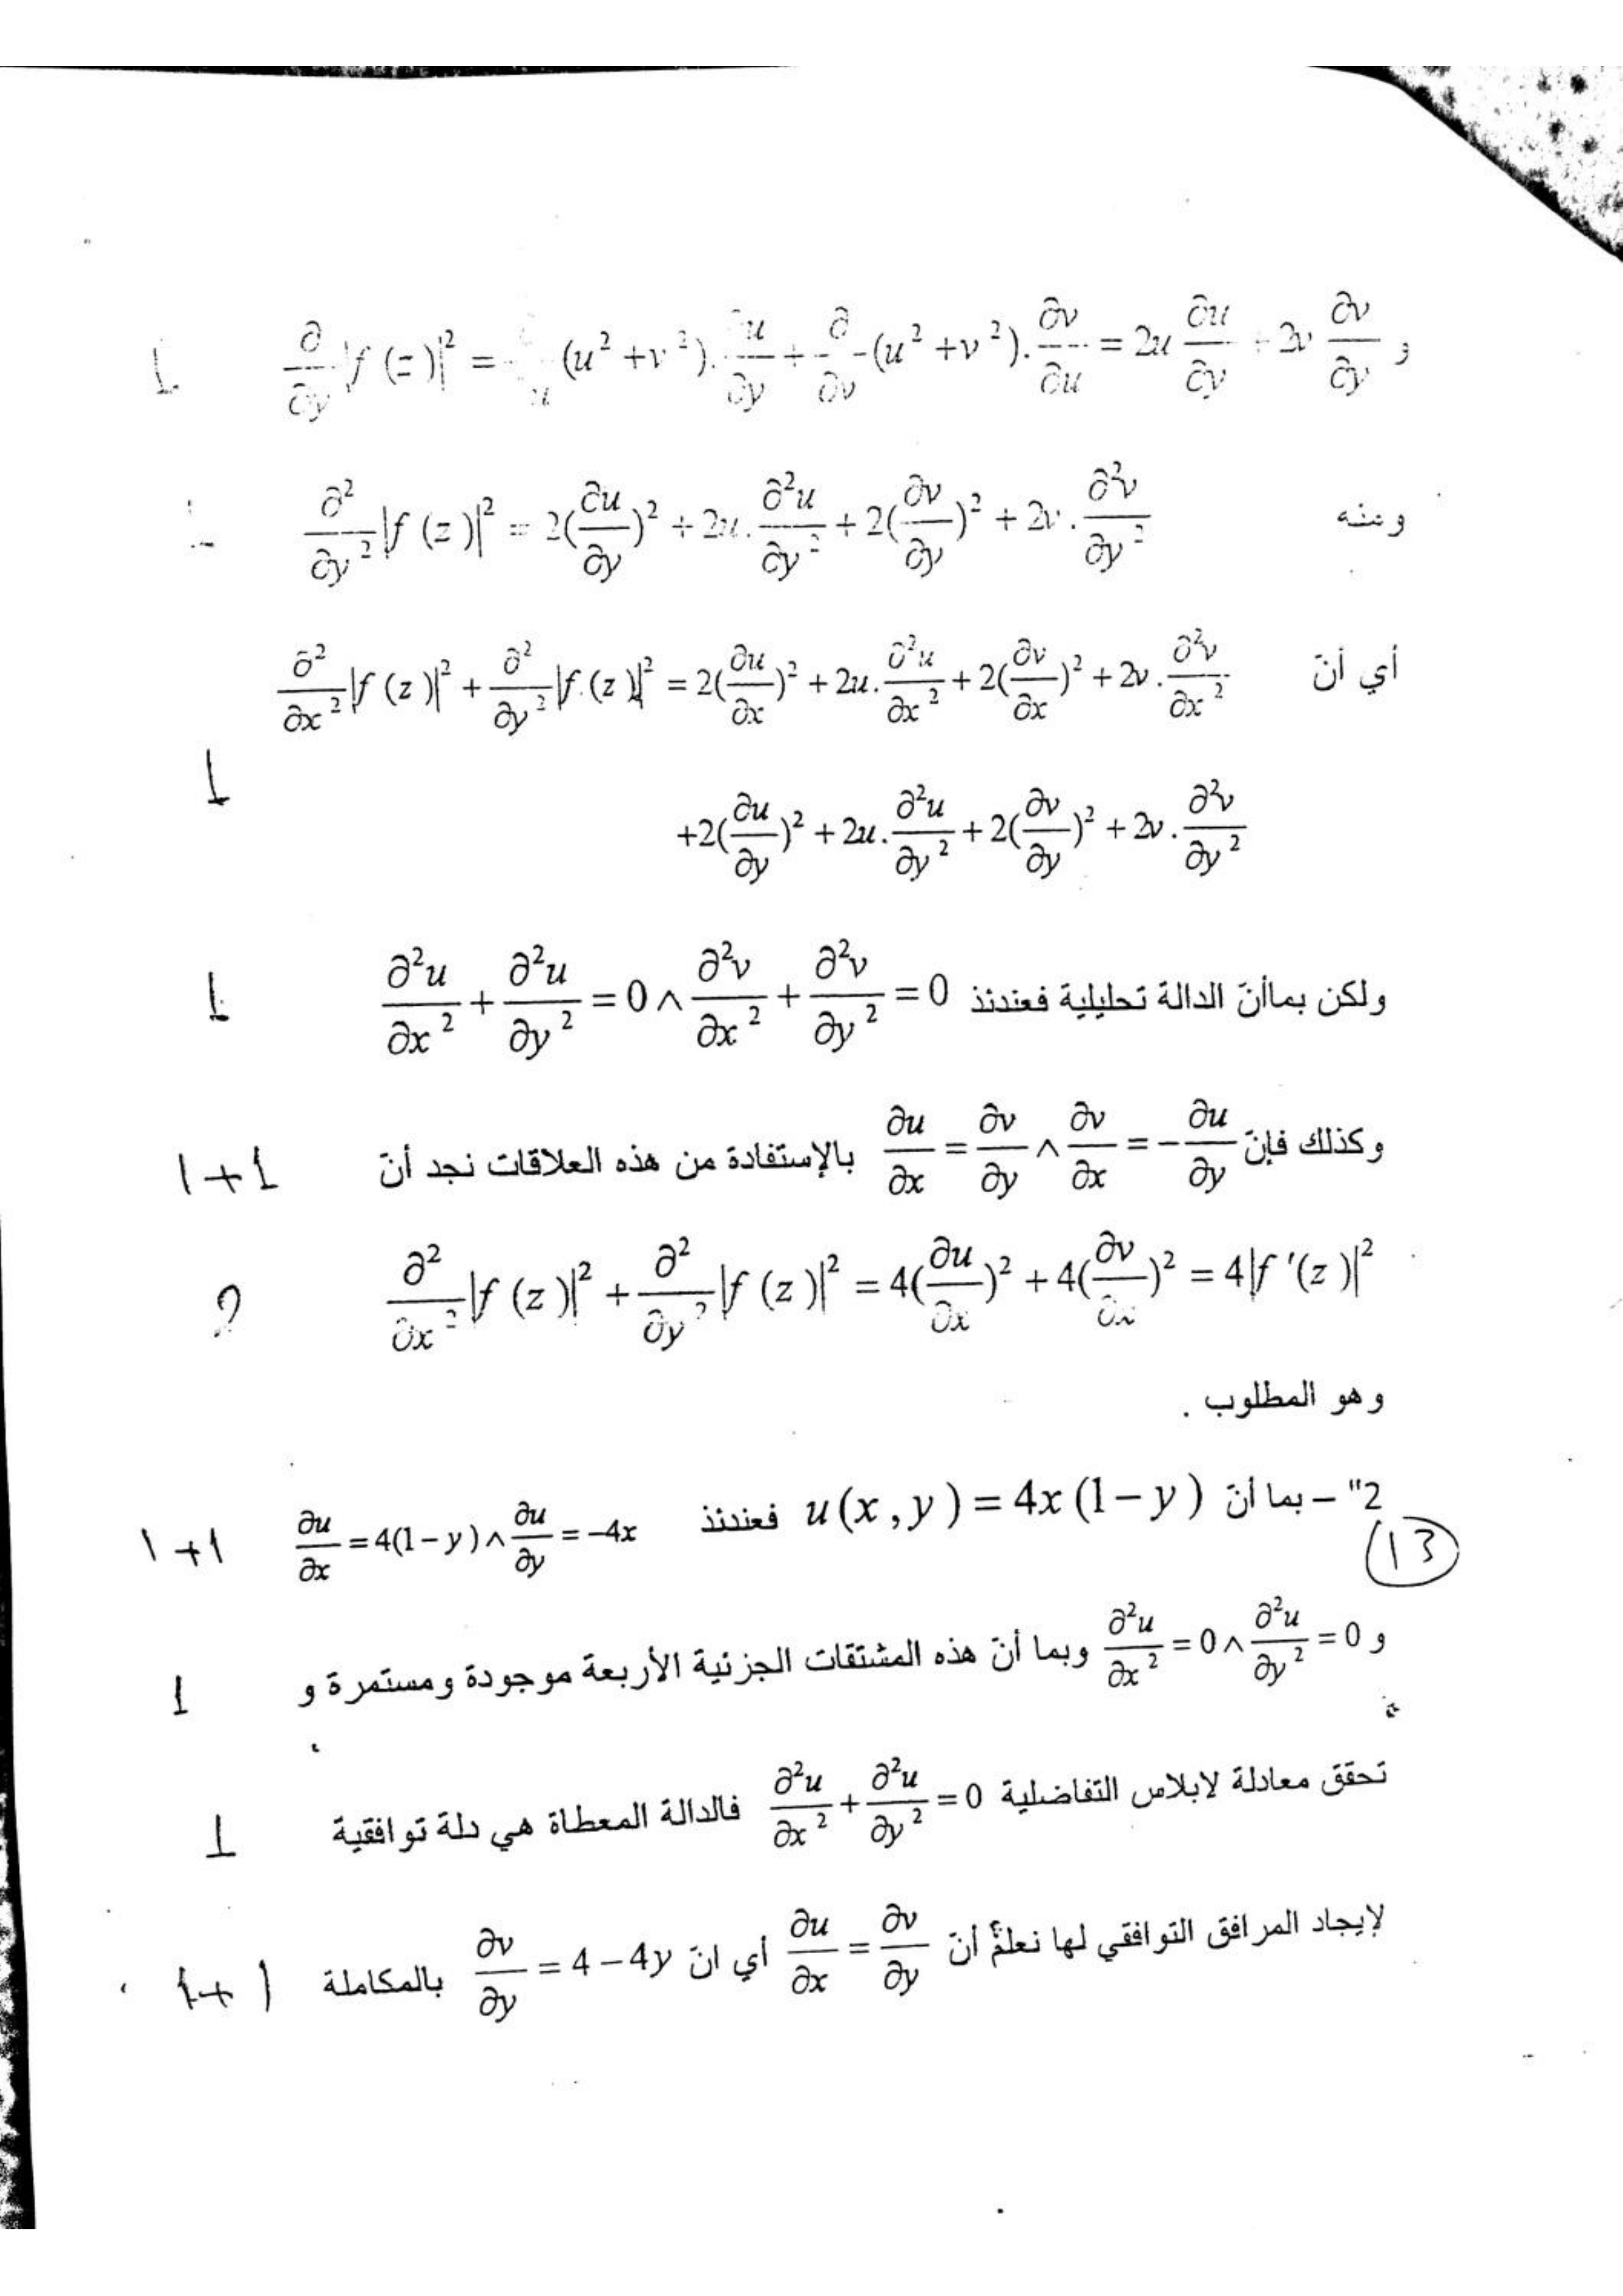 و ∂/∂y |f (z)|² = (u² + v²). ∂u/∂y + ∂/∂v (u² + v²). ∂v/∂u = 2u ∂u/∂y + 2v ∂v/∂y 1
ومنه ∂²/∂y² |f (z)|² = 2(∂u/∂y)² + 2u. ∂²u/∂y² + 2(∂v/∂y)² + 2v. ∂²v/∂y²
أي أنّ ∂²/∂x² |f (z)|² + ∂²/∂y² |f (z)|² = 2(∂u/∂x)² + 2u. ∂²u/∂x² + 2(∂v/∂x)² + 2v. ∂²v/∂x²
+2(∂u/∂y)² + 2u. ∂²u/∂y² + 2(∂v/∂y)² + 2v. ∂²v/∂y² 1
ولكن بماأنّ الدالة تحليلية فعندئذ ∂²u/∂x² + ∂²u/∂y² = 0 ∧ ∂²v/∂x² + ∂²v/∂y² = 0 1
وكذلك فإنّ ∂u/∂x = ∂v/∂y ∧ ∂v/∂x = −∂u/∂y بالإستفادة من هذه العلاقات نجد أنّ 1+1
∂²/∂x² |f (z)|² + ∂²/∂y² |f (z)|² = 4(∂u/∂x)² + 4(∂v/∂x)² = 4|f ′(z)|² 2
وهو المطلوب .
2" – بما أنّ u(x, y) = 4x(1 − y) فعندئذ ∂u/∂x = 4(1 − y) ∧ ∂u/∂y = −4x 1+1
13
و ∂²u/∂x² = 0 ∧ ∂²u/∂y² = 0 وبما أنّ هذه المشتقات الجزئية الأربعة موجودة ومستمرة و 1
تحقق معادلة لابلاس التفاضلية ∂²u/∂x² + ∂²u/∂y² = 0 فالدالة المعطاة هي دلة توافقية 1
لإيجاد المرافق التوافقي لها نعلمُ أنّ ∂u/∂x = ∂v/∂y أي انّ ∂v/∂y = 4 − 4y بالمكاملة 1+1